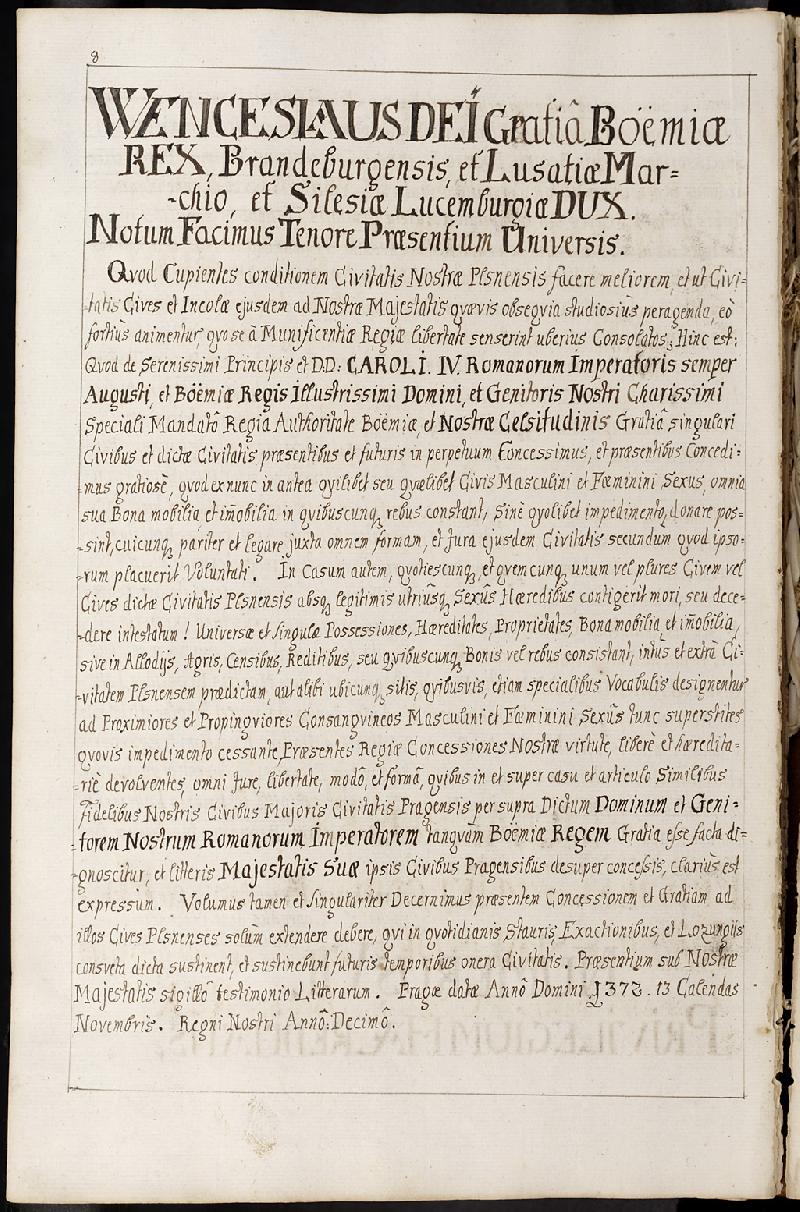 8
WENCESLAUS DEI Gratiâ Boëmiæ
REX, Brandeburgensis, et Lusatiæ Mar=
-chio, et Silesiæ Lucemburgiæ DUX.
Notum Facimus Tenore Præsentium Universis.
Qvod Cupientes conditionem Civitatis Nostræ Plsnensis facere meliorem, et ut Civi-
-tatis Cives et Incolæ ejusdem ad Nostræ Majestatis qvævis obseqvia studiosiùs peragenda, eò
fortiùs animentur qvo se â Munificentiæ Regiæ libertate senserint uberius Consolatos, Hinc est:
Qvod de Serenissimi Principis et D.D: CAROLI. IV. Romanorum Imperatoris semper
Augusti, et Boëmiæ Regis Illustrissimi Domini, et Genitoris Nostri Charissimi
Speciali Mandatô Regia Authoritate Boëmiæ, et Nostræ Celsitudinis Gratiâ singulari
Civibus et dictæ Civitatis præsentibus et futuris in perpetuum Concessimus, et præsentibus Concedi-
mus gratiosè, qvod ex nunc in antea qvilibet seu qvælibet Civis Masculini et Fæminini Sexus, omnia
sua Bona mobilia et im̄obilia in qvibuscunq, rebus constant, sinè qvolibet impedimento, donare pos=
-sint, cuicunq, pariter et legare juxta omnem formam, et Jura ejusdem Civitatis secundum qvod ipso-
-rum placuerit Voluntati. In Casum autem, qvotiescunq, et qvemcunq, unum vel plures Civem vel
Cives dictæ Civitatis Plsnensis absq, legitimis utriusq, Sexûs Hæredibus contigerit mori, seu dece-
-dere intestatum! Universæ et singulæ Possessiones, Hæreditates, Proprietates, Bona mobilia et im̄obilia,
sive in Allodijs, Agris, Censibus, Reditibus, seu qvibuscunq, Bonis vel rebus consistant, intus et extrâ Ci-
-vitatem Plsnensem prædictam, aut alibi ubicunq, sitis, qvibusvis, etiam specialibus Vocabulis designentur
ad Proximiores et Propinqviores Consangvineos Masculini et Fæminini Sexûs tunc superstites
qvovis impedimento cessante, Præsentes Regiæ Concessiones Nostræ virtute, liberè et hæredita-
-riè devolventes, omni Jure, libertate, modô, et formâ, qvibus in et super casu et articulo Similibus
fidelibus Nostris Civibus Majoris Civitatis Pragensis per supra Dictum Dominum et Geni-
-torem Nostrum Romanorum Imperatorem tanqvam Boëmiæ Regem Gratia esse facta di=
-gnoscitur, et litteris Majestatis Suæ ipsis Civibus Pragensibus desuper concessis, clarius est
expressum. Volumus tamen et singulariter Decernimus præsentem Concessionem et Gratiam ad
illos Cives Plsnenses solùm extendere debere, qvi in qvotidianis Stauris, Exactionibus, et Lozungijs
consveta dicta sustinent, et sustinebunt futuris temporibus onera Civitatis. Præsentium sub Nostræ
Majestatis sigillô testimonio Litterarum. Pragæ datæ Annô Domini 1372. 13 Calendas
Novembris. Regni Nostri Annô: Decimô.